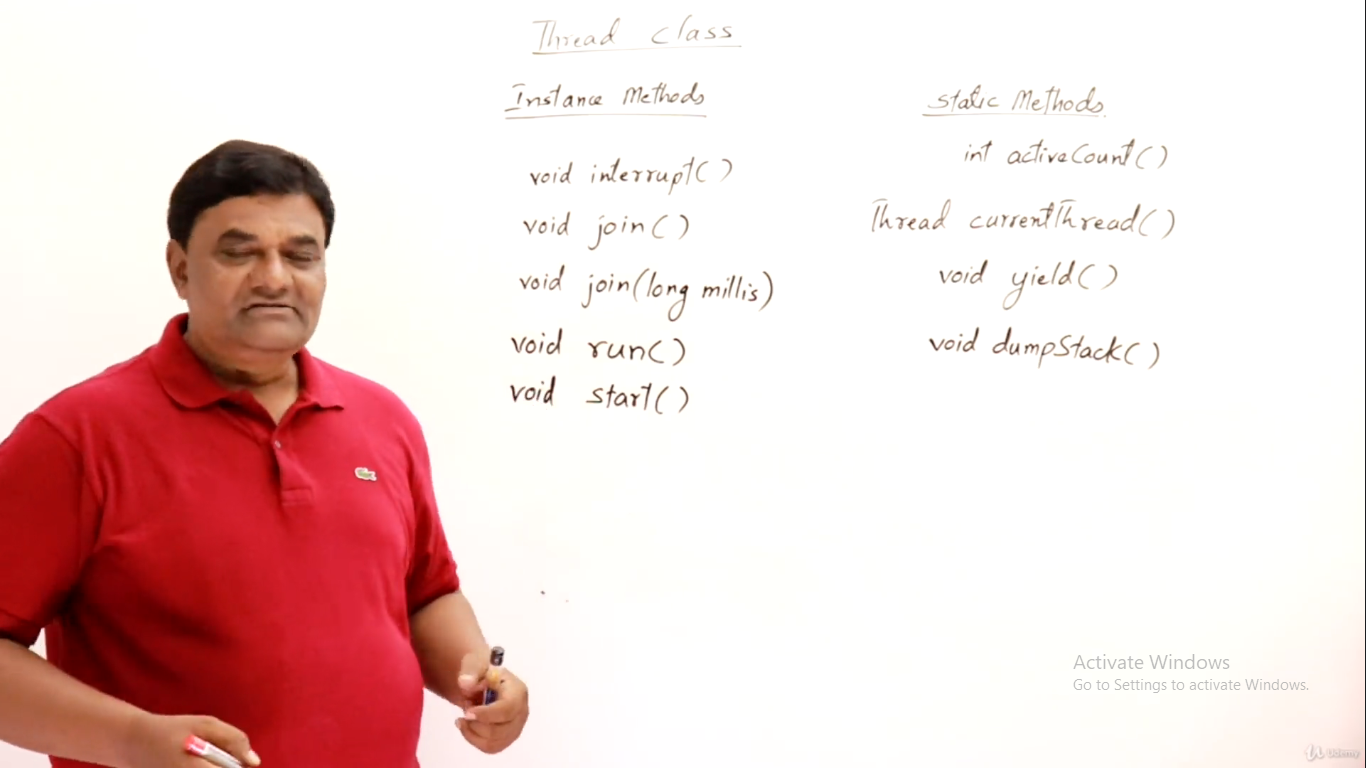 Thread Class
Instance Methods
void interrupt()
void join()
void join(long millis)
void run()
void start()
Static Methods
int activeCount()
Thread currentThread()
void yield()
void dumpStack()
Activate Windows
Go to Settings to activate Windows.
Udemy